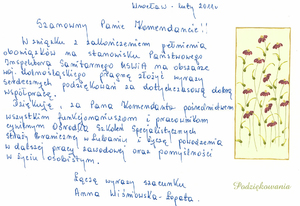 Wrocław - luty 2011r
Szanowny Panie Komendancie!!
W związku z zakończeniem pełnienia
obowiązków na stanowisku Państwowego
Inspektora Sanitarnego MSWiA na obszarze
woj. dolnośląskiego pragnę złożyć wyrazy
serdecznych podziękowań za dotychczasową dobrą
współpracę.
Dziękuję, za Pana Komendanta pośrednictwem
wszystkim funkcjonariuszom i pracownikom
cywilnym Ośrodka Szkoleń Specjalistycznych
Straży Granicznej w Lubaniu i życzę powodzenia
w dalszej pracy zawodowej oraz pomyślności
w życiu osobistym.
Łączę wyrazy szacunku
Anna Wiśniowska-Łopata.
Podziękowania